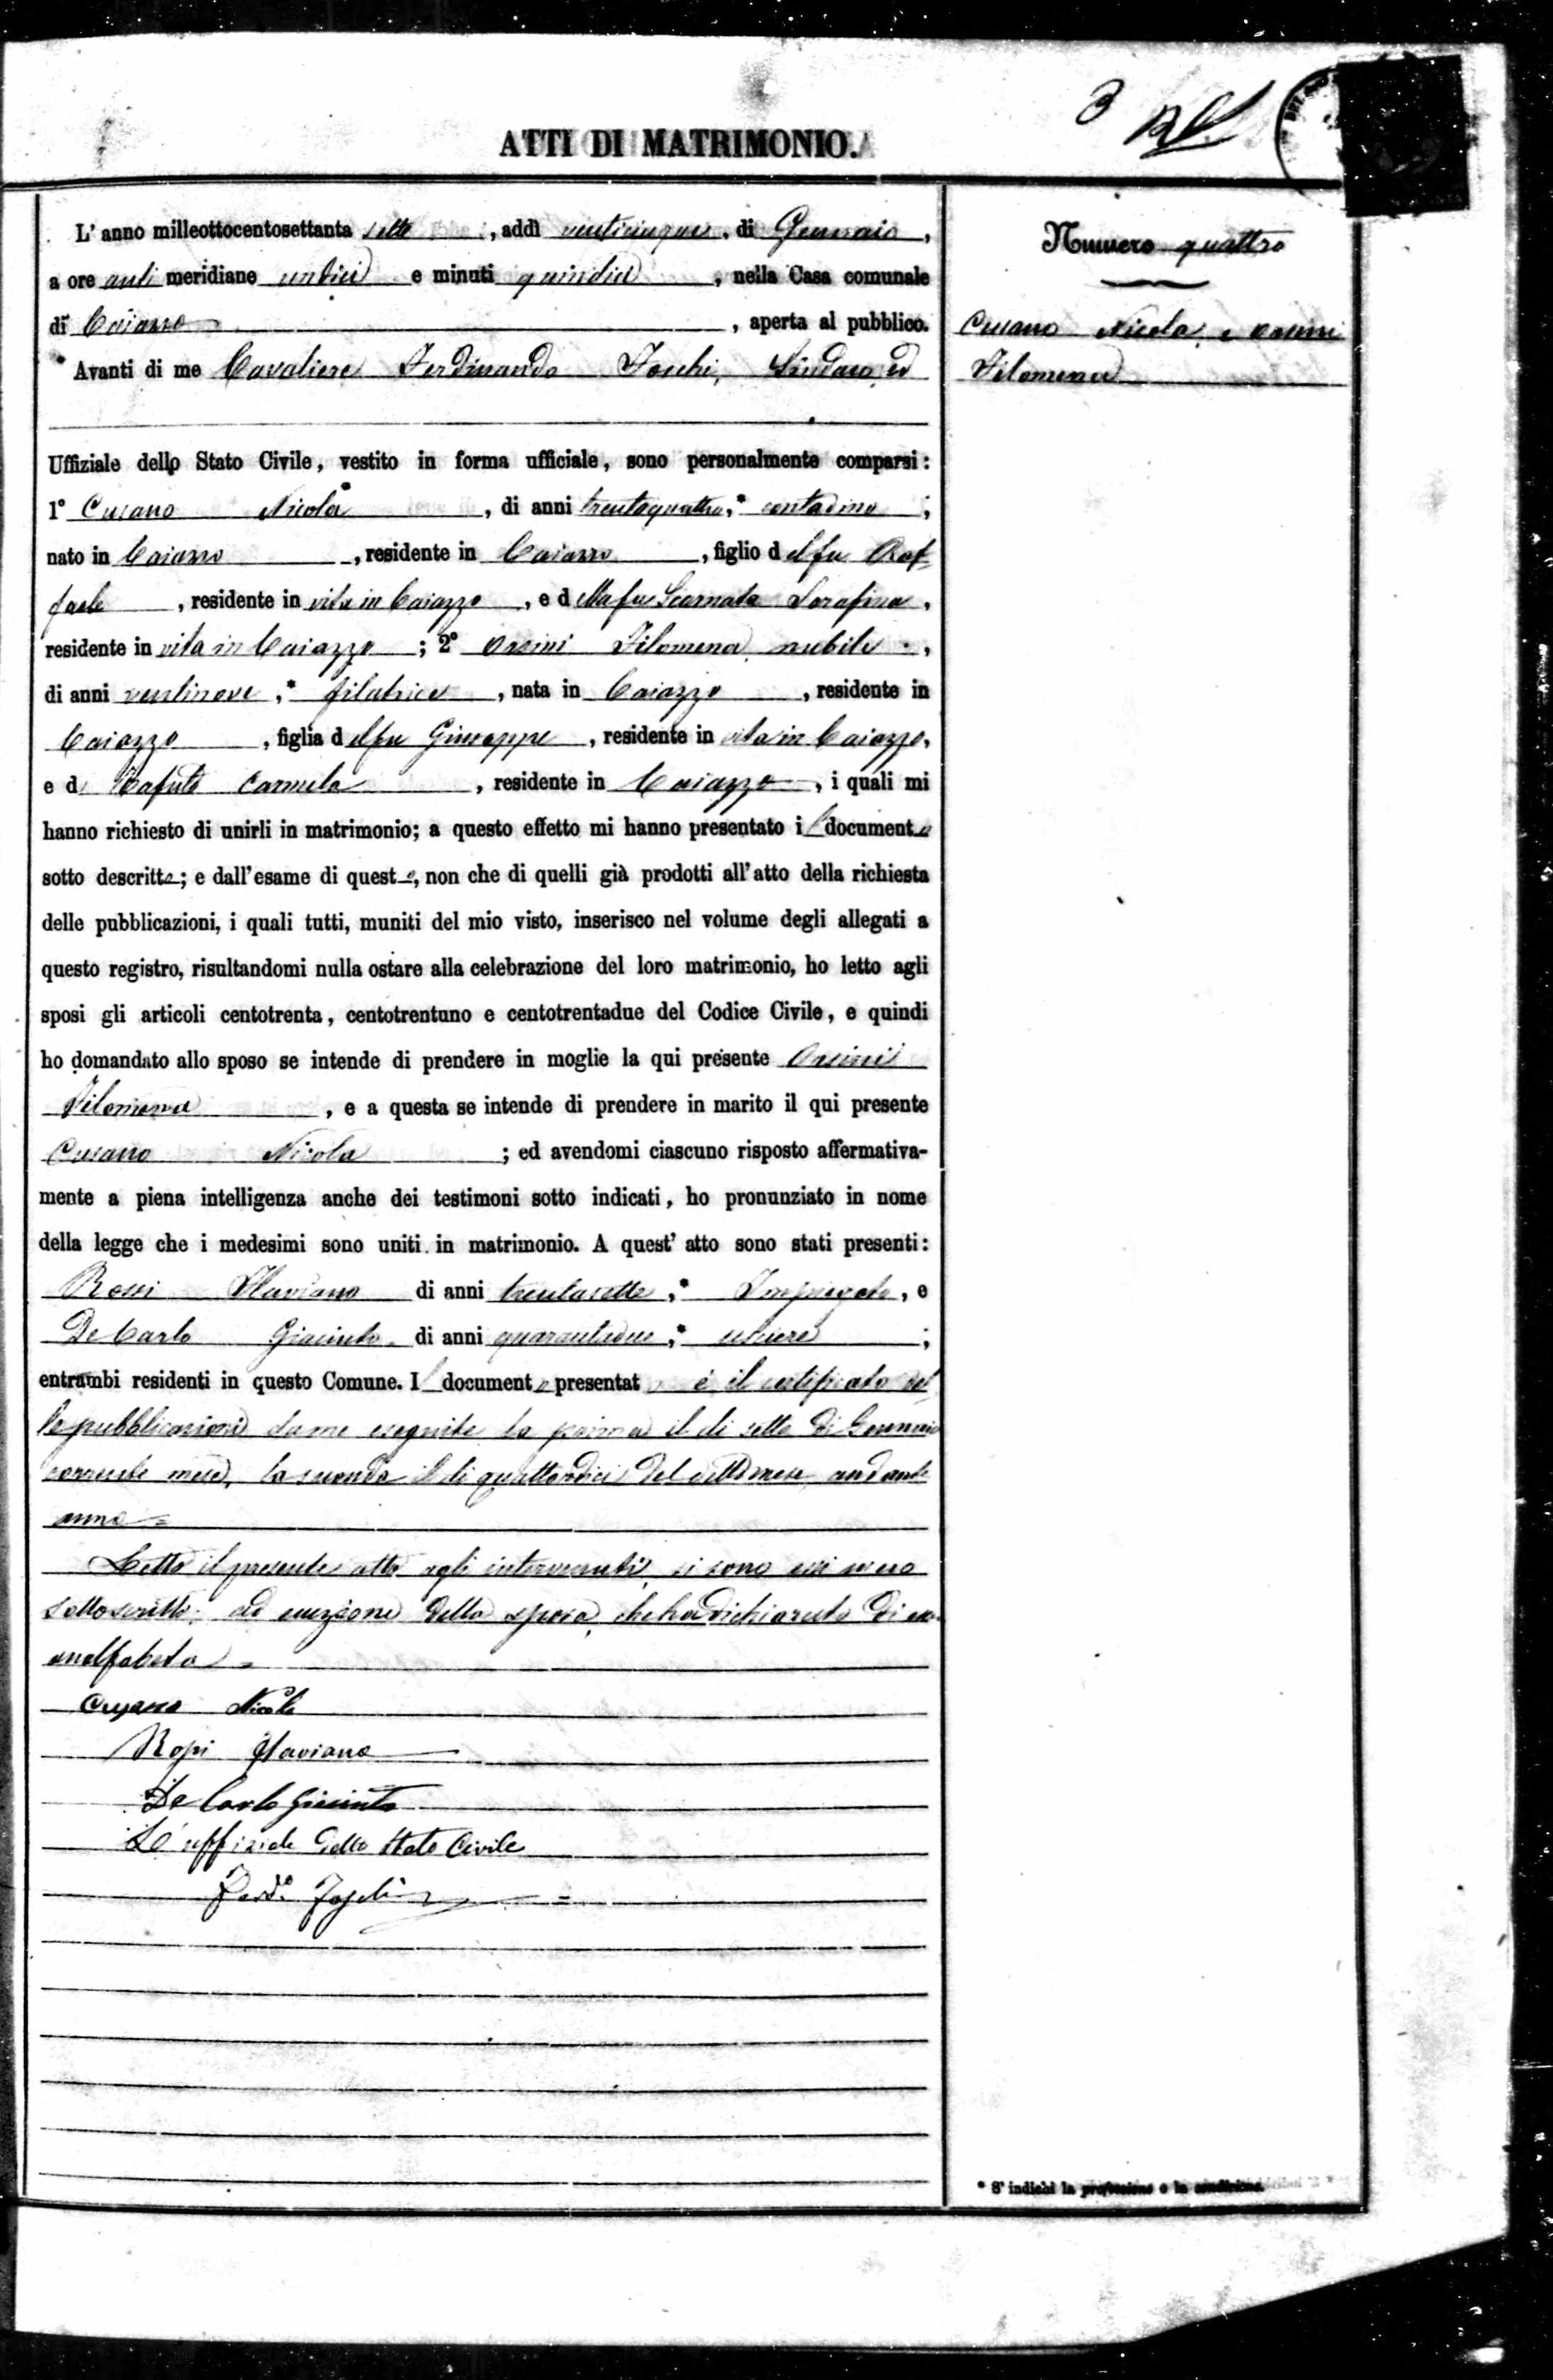 3
ATTI DI MATRIMONIO.
L' anno milleottocentosettanta sette , addì venticinque , di Gennaio ,
a ore anti meridiane undici e minuti quindici , nella Casa comunale
di Caiazzo , aperta al pubblico.
* Avanti di me Cavaliere Ferdinando Foschi, Sindaco ed
Uffiziale dello Stato Civile, vestito in forma ufficiale, sono personalmente comparsi:
1° Cusano Nicola , di anni trentaquattro, * contadino ;
nato in Caiazzo , residente in Caiazzo , figlio d el fu Raf
faele , residente in vita in Caiazzo , e d ella fu Serafina ,
residente in vita in Caiazzo ; 2° Orsini Filomena nubile ,
di anni ventinove , * filatrice , nata in Caiazzo , residente in
Caiazzo , figlia d el fu Giuseppe , residente in vita in Caiazzo,
e d Carmela , residente in Caiazzo , i quali mi
hanno richiesto di unirli in matrimonio; a questo effetto mi hanno presentato il documento
sotto descritto; e dall'esame di questo, non che di quelli già prodotti all'atto della richiesta
delle pubblicazioni, i quali tutti, muniti del mio visto, inserisco nel volume degli allegati a
questo registro, risultandomi nulla ostare alla celebrazione del loro matrimonio, ho letto agli
sposi gli articoli centotrenta, centotrentuno e centotrentadue del Codice Civile, e quindi
ho domandato allo sposo se intende di prendere in moglie la qui presente Orsini
Filomena , e a questa se intende di prendere in marito il qui presente
Cusano Nicola ; ed avendomi ciascuno risposto affermativa-
mente a piena intelligenza anche dei testimoni sotto indicati, ho pronunziato in nome
della legge che i medesimi sono uniti in matrimonio. A quest' atto sono stati presenti:
Rossi Flaviano di anni trentasette , * Impiegato , e
De Carlo Giacinto di anni quarantadue , * usciere ;
entrambi residenti in questo Comune. Il documento presentato è il certificato del
le pubblicazioni da me eseguite la prima il di sette di Gennaio
corrente mese, la seconda il di quattordici del detto mese andante
anno =
Letto il presente atto agli intervenuti si sono essi meco
sottoscritti, ad eccezione della sposa, che ha dichiarato di esser
analfabeta =
Cusano Nicola
Rossi Flaviano
De Carlo Giacinto
L'uffiziale dello Stato Civile
Ferd.° Foschi
Numero quattro
Cusano Nicola e Orsini
Filomena
* S' indichi la professione o la condizione.